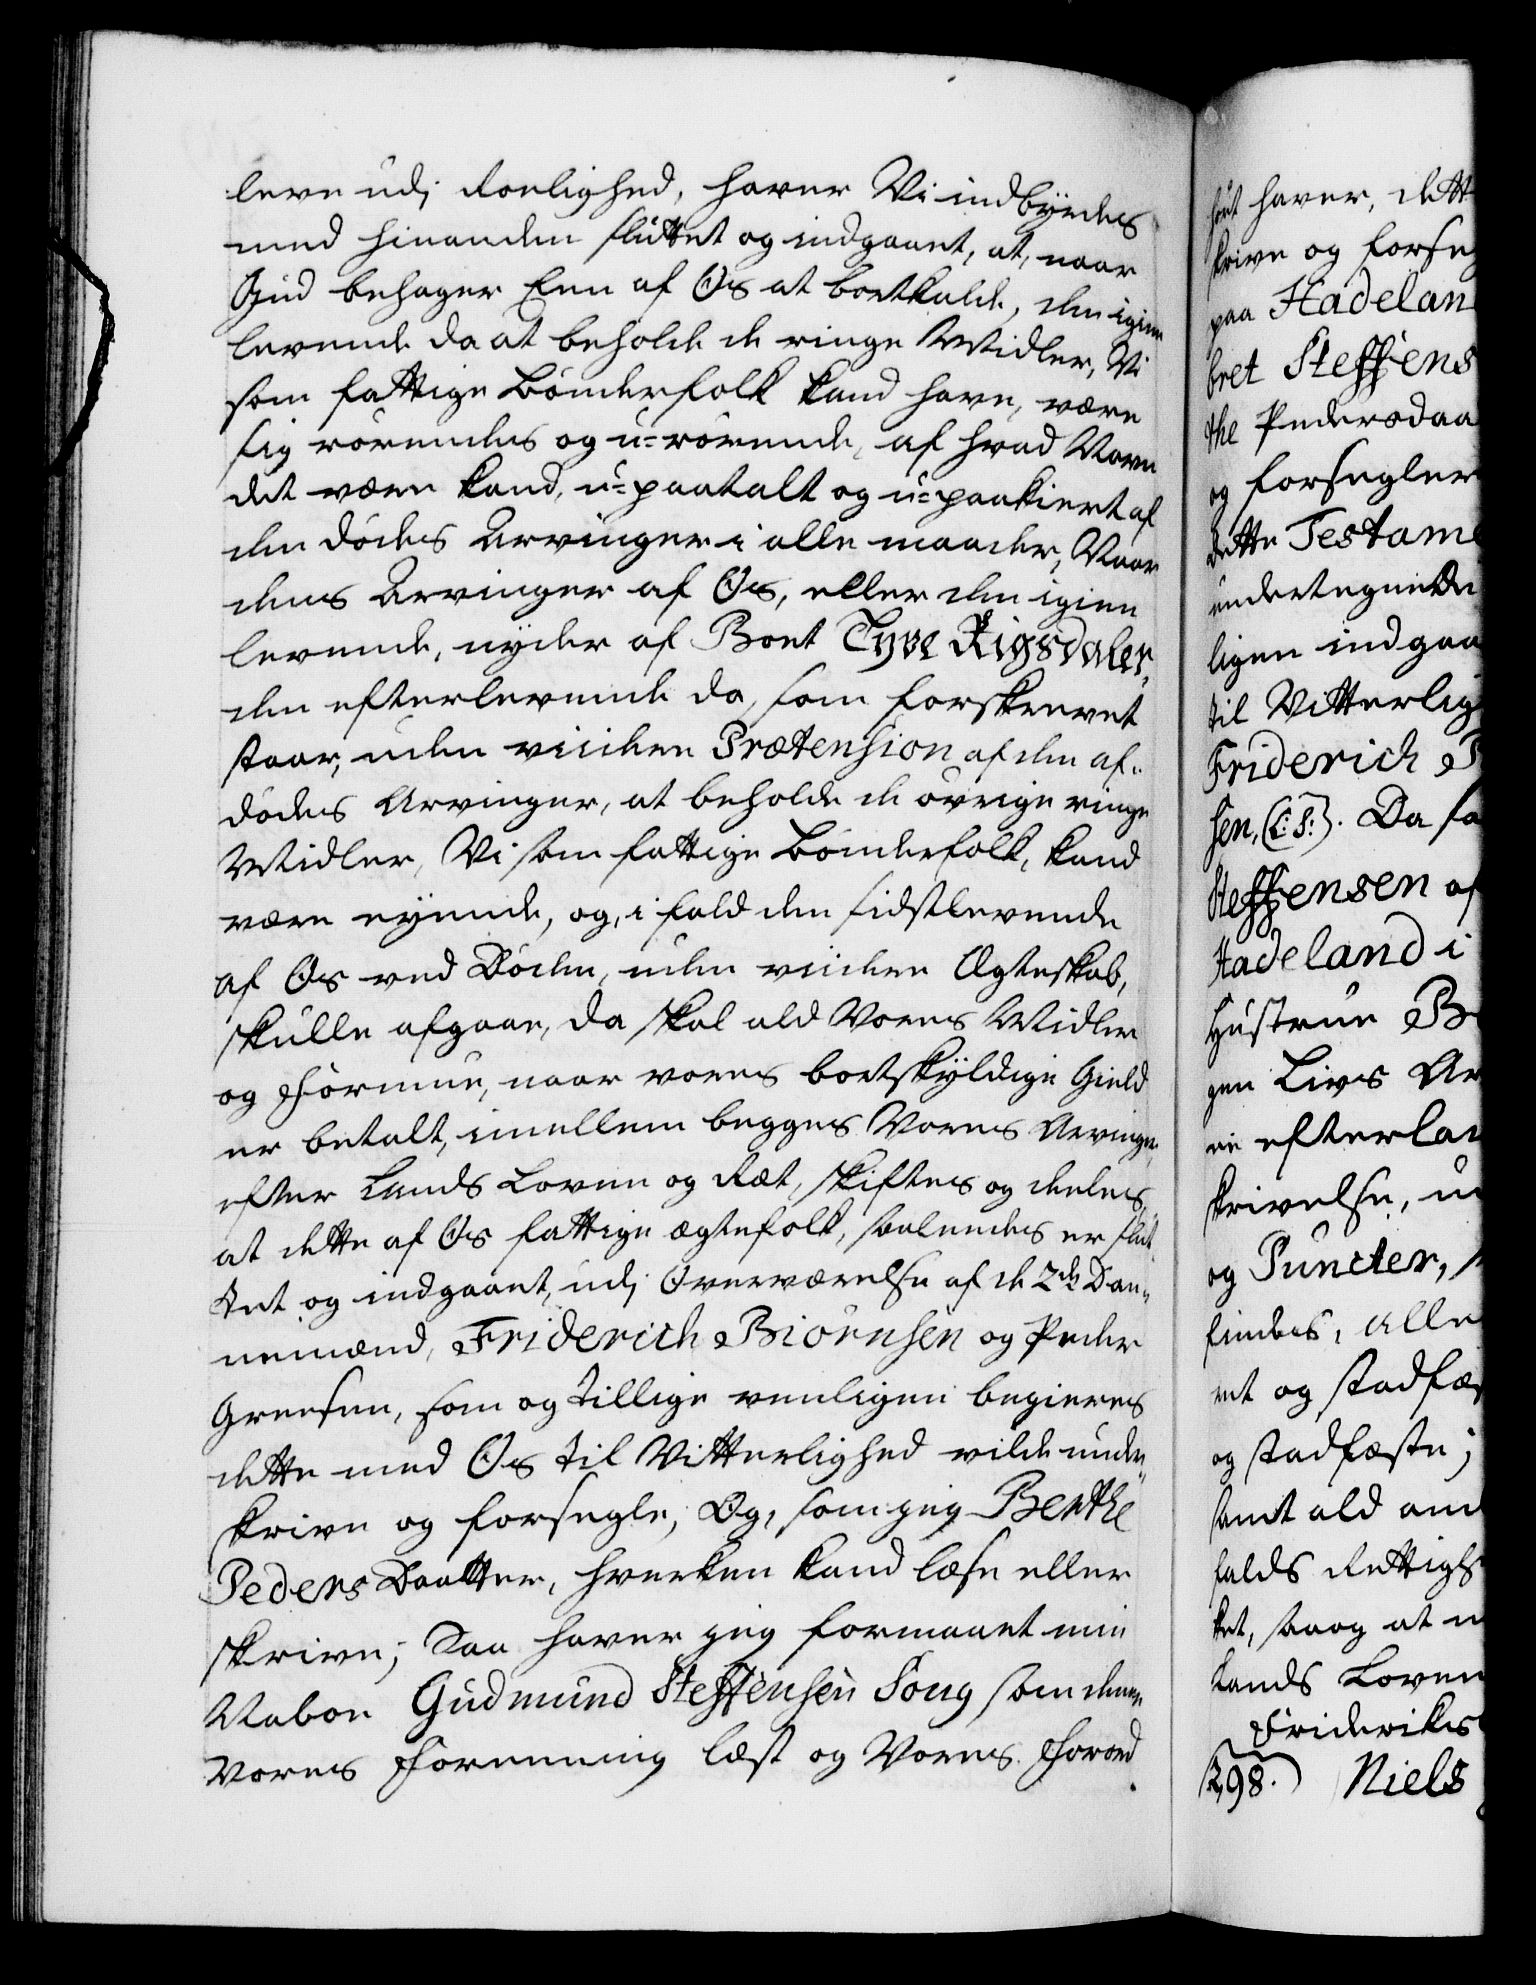 leve udj Roelighed, haver Vi indbyrdes
med hinanden sluttet og indgaaet, at, naar
Gud behager Een af Os at bortkalde, den igien
levende da at beholde de ringe Midler, Vi
som fattige Bønderfolk kand have, være
sig rørendes og u-rørende, af hvad Navn
det være kand, u-paatalt og u-paakiert af
den dødes Arvinger i alle maader, Naar
dens Arvinger af Os, eller den igien
levende, nyder af Boet Tyve Rigsdaler,
den efterlevende da, som forskrevet
staar, uden viidere Prætension af den af-
dødes Arvinger, at beholde de øvrige ringe
Midler, Vi som fattige Bønderfolk, kand
være eyende, og, i fald den sidstlevende
af Os ved Døden, uden viidere Ægteskab,
skulle afgaae, da skal ald Vores Midler
og Formue, naar vores bortskyldige Gield
er betalt, imellem begges Vores Arvinger,
efter Lands Loven og Ræt, skiftes og deeles,
at dette af Os fattige ægtefolk, saaledes er slut-
tet og indgaaet, udj Overværelse af de 2de Dan-
nemænd, Friderich Biørnsen og Peder
Greesen, som og tillige venligen begieres
dette med Os til Vitterlighed vilde under-
skrive og forsegle, Og, som jeg Berthe
Peders Daatter, hverken kand læse eller
skrive; Saa haver jeg formaaet min
Naboe Gudmund Steffensen Soug som denne
vores Foreening læst og Vores Forord
haver, dett
skrive og forseg
paa Hadelan
bret Steffens
the Pedersdaa
og forsegler
dette Testame
undertegnede
ligen indgaa
til Vitterlig
Friderich B
sen, (L: S:). Da sa
Steffensen af
Hadeland i
Hustrue Be
gen Livs Ar
efterla
skrivelse, u
og Puncter,
findes, alle
ret og stadfæs
og stadfæste;
samt ald and
falds Rettigh
ket, saa og at
Lands Loven
Frideriks
298. Niels